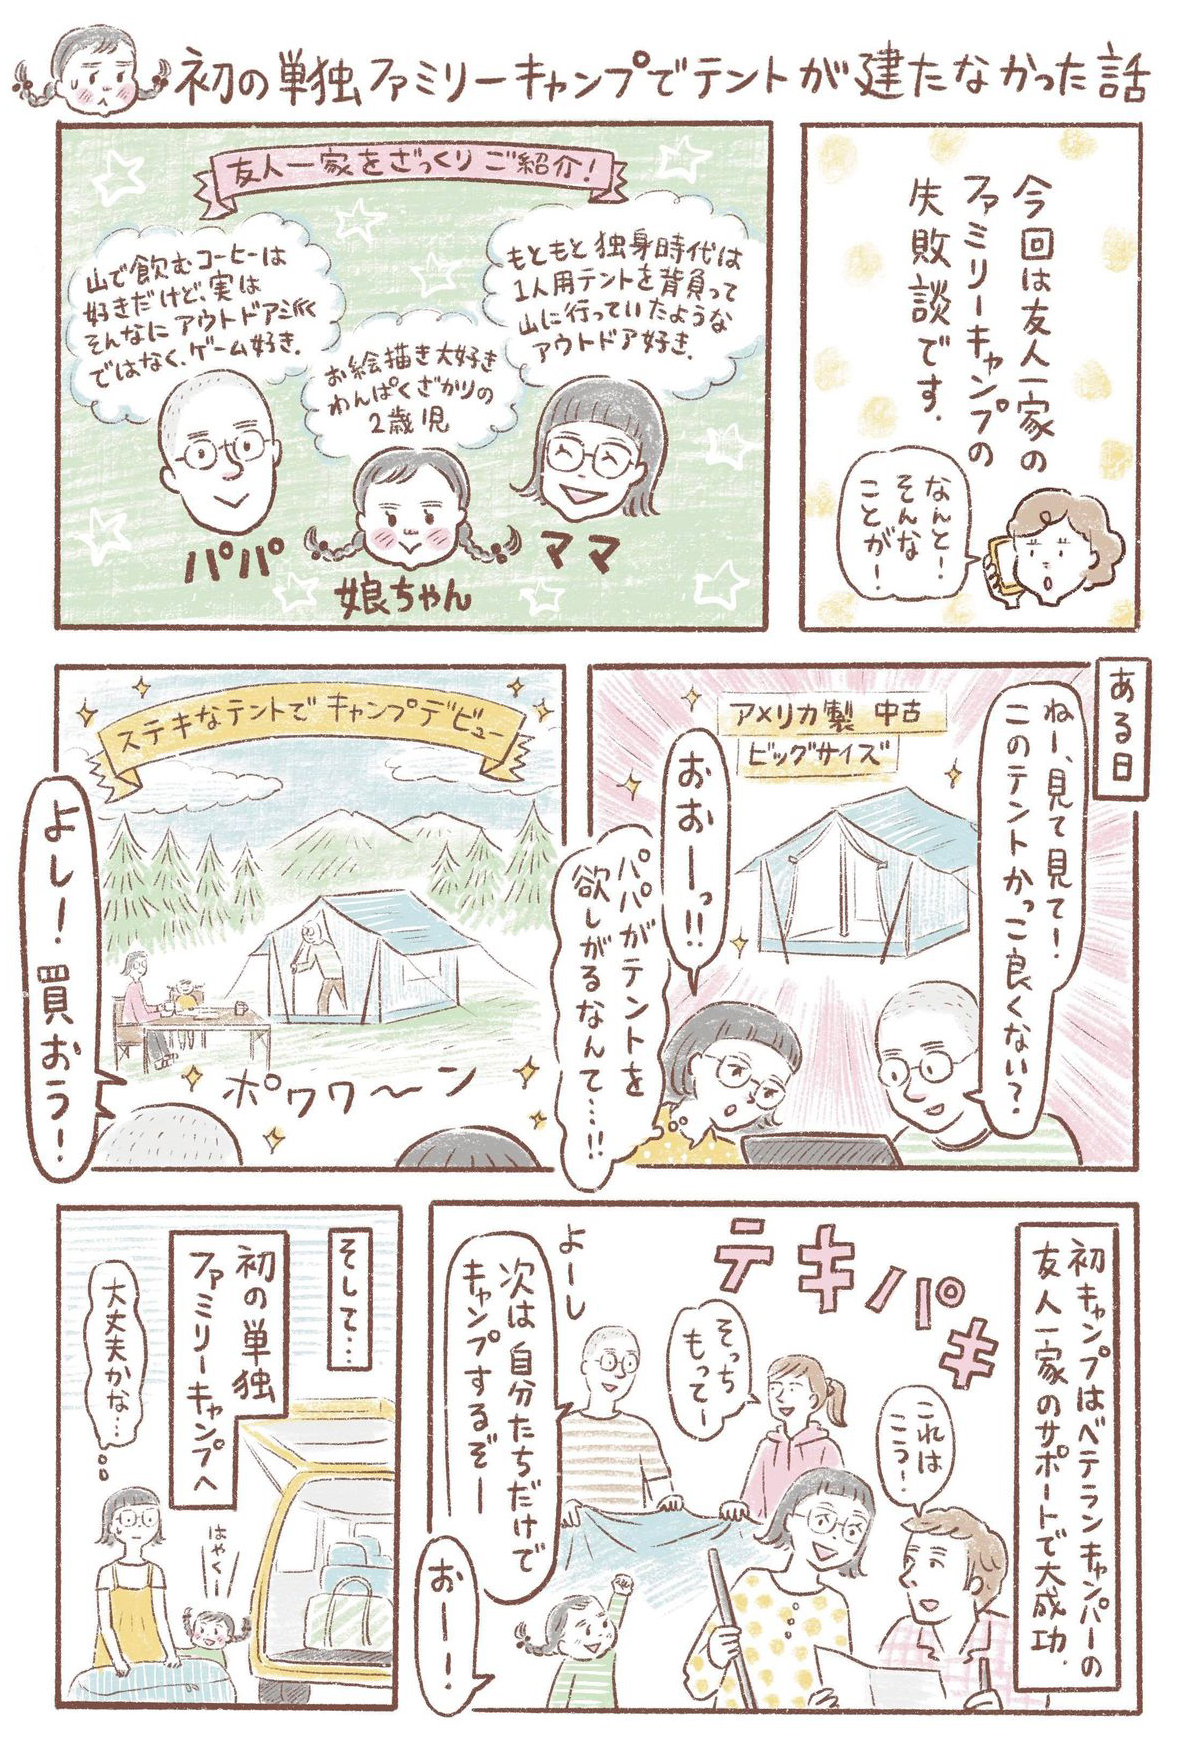 初の単独ファミリーキャンプでテントが建たなかった話
今回は友人一家の
ファミリーキャンプの
失敗談です.
なんと!
そんな
ことが!
友人一家をざっくりご紹介!
もともと独身時代は
1人用テントを背負って
山に行っていたような
アウトドア好き.
ママ
お絵描き大好き
わんぱくざかりの
2歳児
娘ちゃん
山で飲むコーヒーは
好きだけど、実は
そんなにアウトドア派
ではなく、ゲーム好き.
パパ
ある日
ねー、見て見て!
このテントかっこ良くない?
アメリカ製 中古
ビッグサイズ
おおーっ!!
パパがテントを
欲しがるなんて…!!
ステキなテントでキャンプデビュー
ポワワ〜ン
よし!買おう!
初キャンプはベテランキャンパーの
友人一家のサポートで大成功.
テキパキ
これは
こう!
そっち
もってー
よーし
次は自分たちだけで
キャンプするぞー
おーー!
そして…
初の単独
ファミリーキャンプへ
大丈夫かな…
はやくー